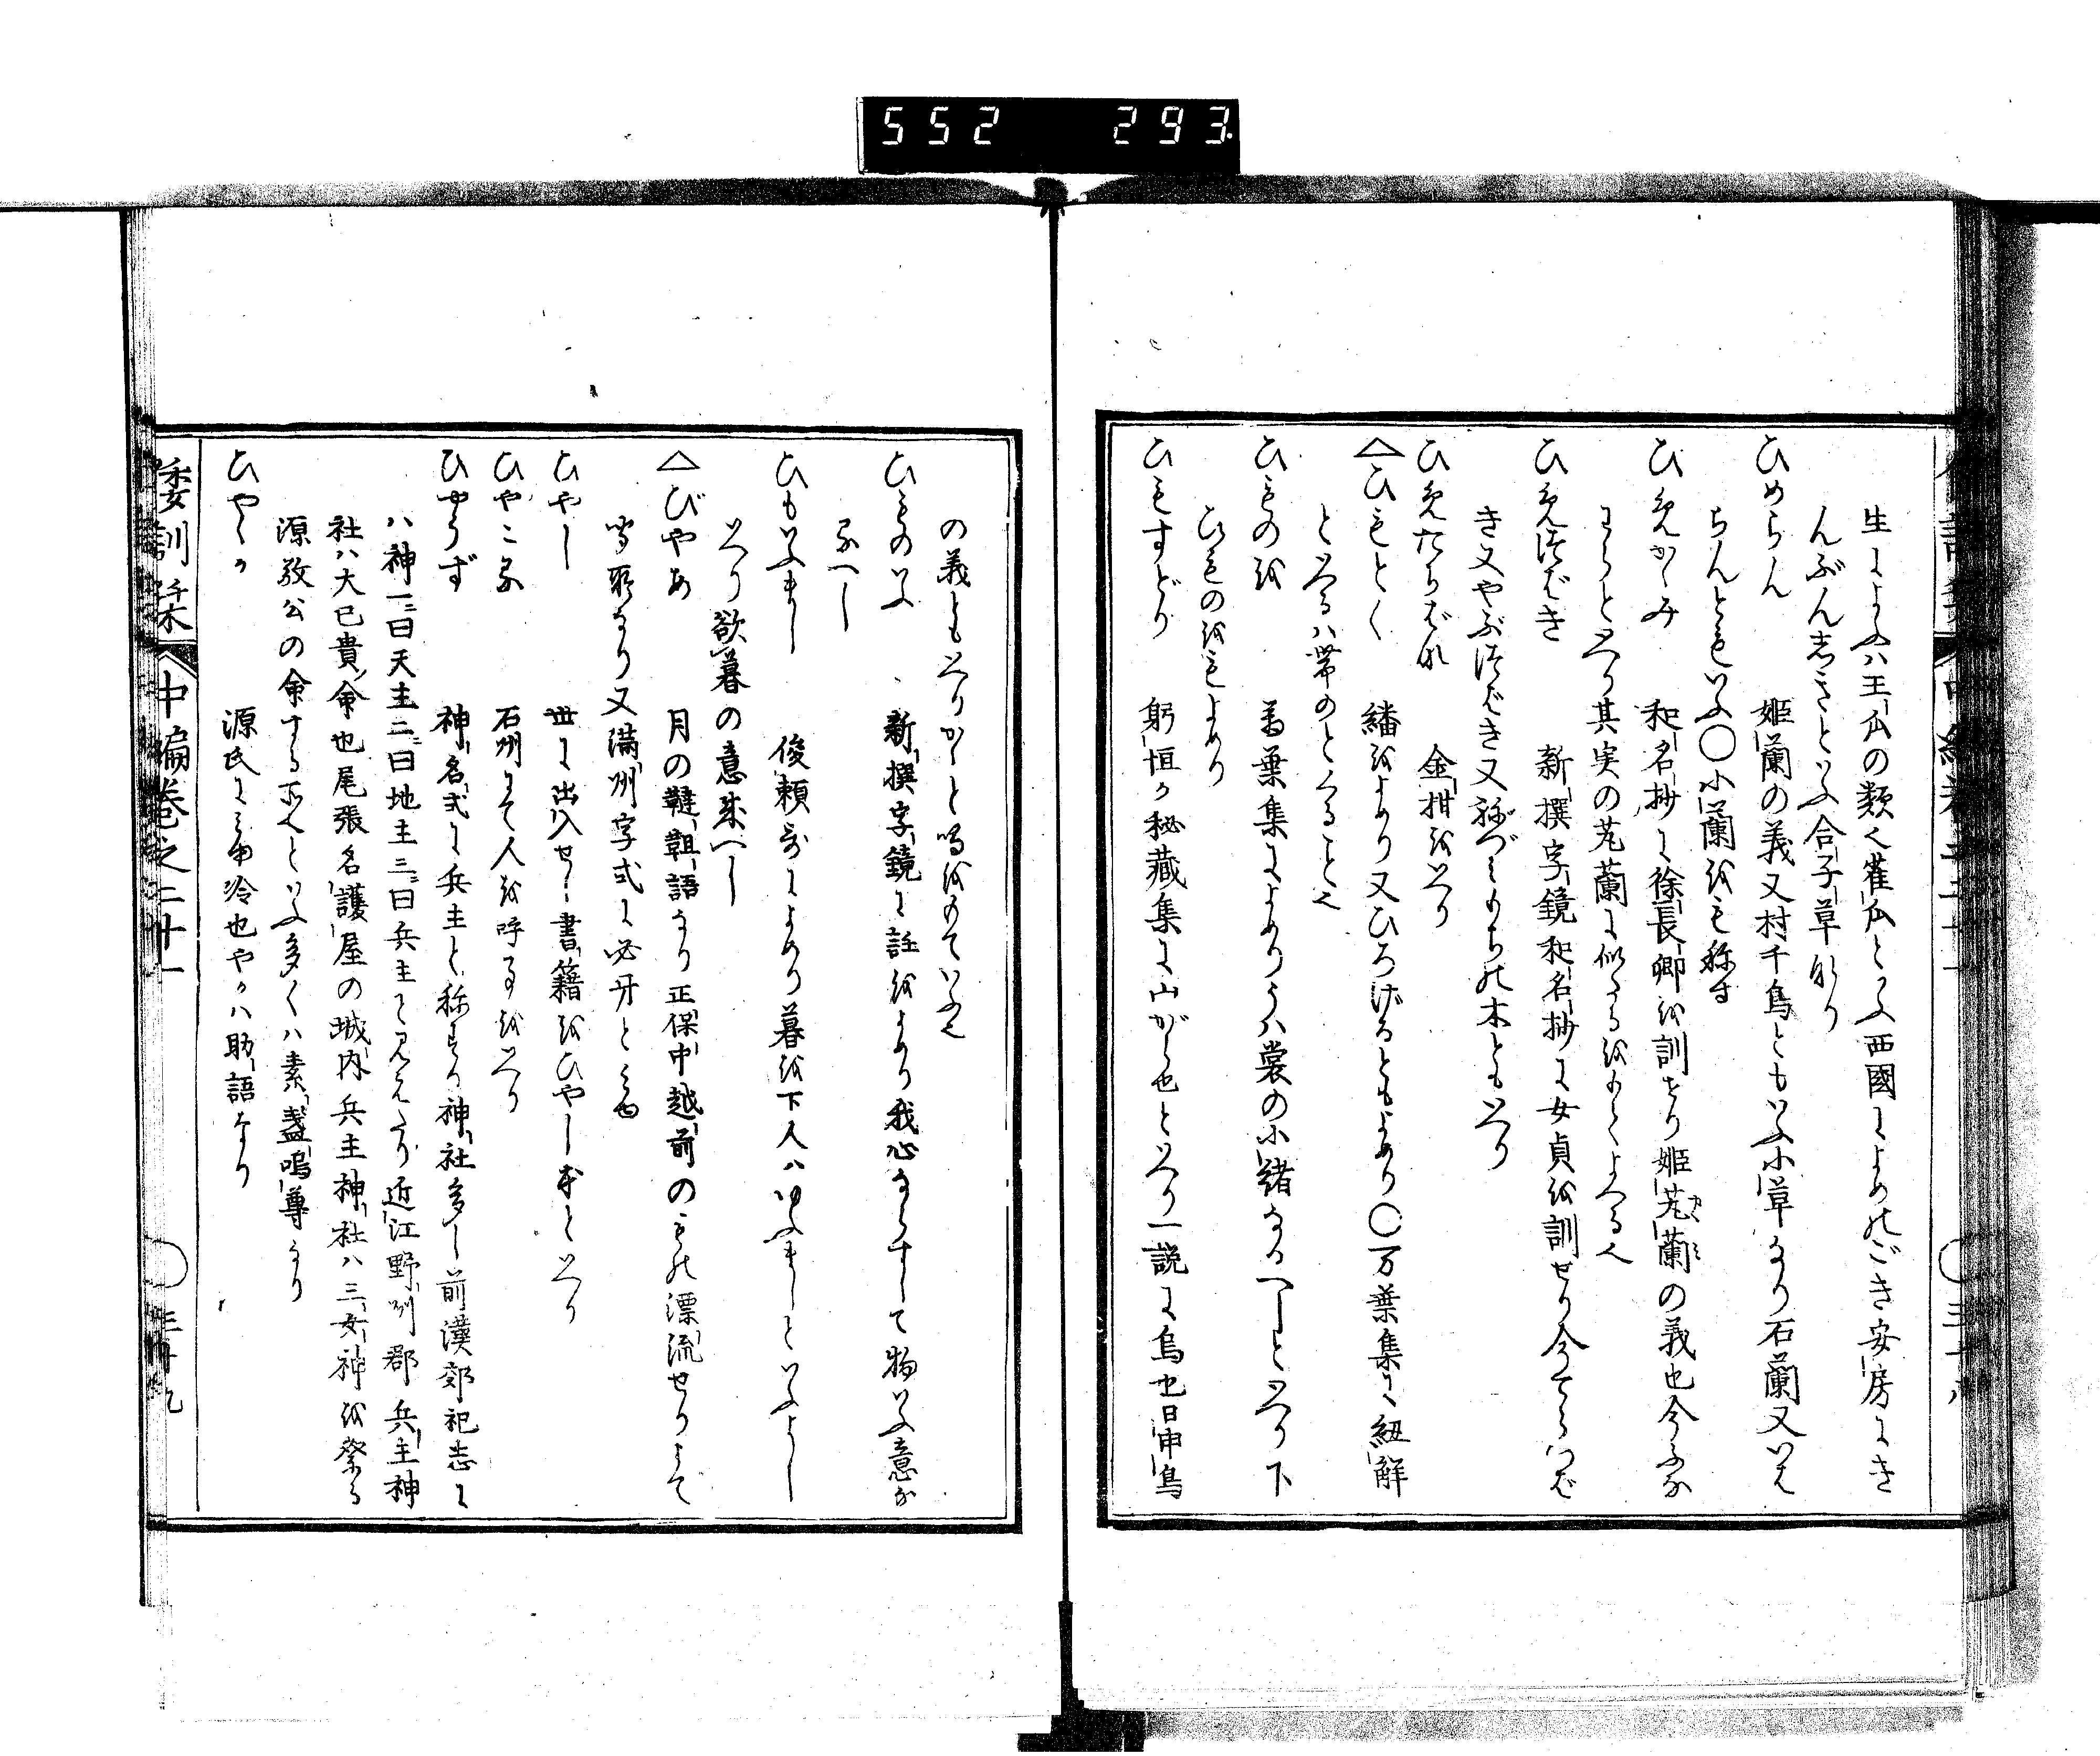 552 293
生によふハ王瓜の類也雀瓜といふ西國によめのごき安房にき
んぶん志きといふ合子草なり
ひめらん 姫蘭の義又村千鳥ともいふ小草なり石蘭又いは
らんともいふ〇小蘭をも称す
ひめかゝみ 和名抄に徐長卿を訓せり姫芄蘭の義也今ふな
わらといへり其実の芄蘭に似たるをもてよへる也
ひめつばき 新撰字鏡和名抄に女貞を訓せり今てらつば
き又やぶつばき又ねづみもちの木ともいへり
ひめたちばな 金柑をいへり
△ひもとく 繙をよめり又ひろげるともよめり〇万葉集に紐解
といへるハ帯のとくること也
ひものを 万葉集によめりうハ裳の小緒なるべしといへり下
ひものをもよめり
ひもすどり 躬恒が秘藏集に山がら也といへり一説に烏也日申鳥
の義ともいへりかゝと鳴をもていふ也
ひものいふ 新撰字鏡に誣をよめり我心ならずして物いふ意な
るべし
ひもいふまし 俊頼哥によめり暮を下人ハゆふましといふよし
いへり欲暮の意成べし
△びやあ 月の韃靼語なり正保中越前のもの漂流せりよて
聞取なり又満州字式に必牙とみゆ
ひやし 世に出入せし書籍をひやし本といへり
ひやこる 石州にて人を呼るをいへり
ひやうず 神名式に兵主と称する神社多し前漢郊祀志に
八神一曰天主二曰地主三曰兵主と見えたり近江野洲郡兵主神
社ハ大己貴命也尾張名護屋の城内兵主神社ハ三女神を祭る
源敬公の命する所也といふ多くハ素盞嗚尊なり
ひやゝか 源氏にみゆ冷也やかハ助語なり
倭訓栞 中編巻之二十一 三十九